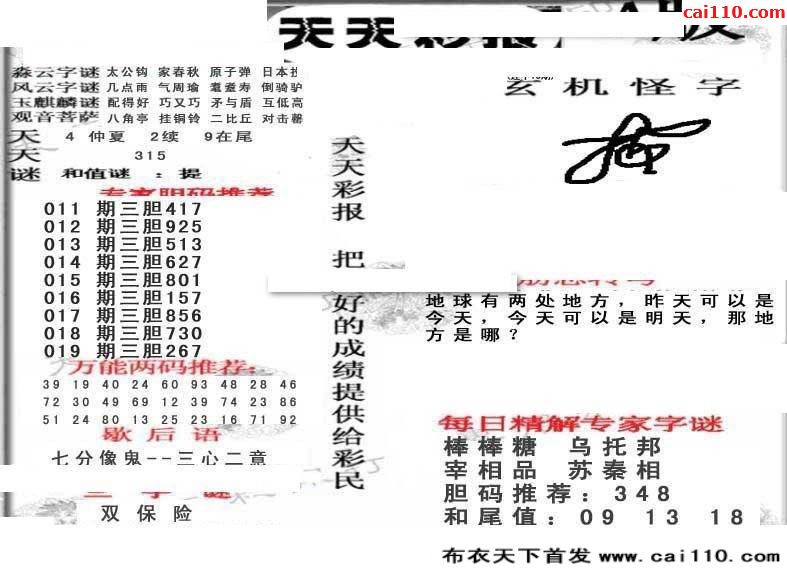 cai110.com
天天彩报
版
淼云字谜 太公钩 家春秋 原子弹 日本
风云字谜 几点雨 气周瑜 耄耋寿 倒骑驴
玉麒麟谜 配得好 巧又巧 矛与盾 互低高
观音菩萨 八角亭 挂铜铃 二比丘 对击
天 4 仲夏 2续 9在尾
天 315
谜 和值谜 : 提
专家胆码推荐
011 期三胆417
012 期三胆925
013 期三胆513
014 期三胆627
015 期三胆801
016 期三胆157
017 期三胆856
018 期三胆730
019 期三胆267
万能两码推荐:
39 19 40 24 60 93 48 28 46
72 30 49 69 12 39 74 23 86
51 24 80 13 25 23 16 71 92
歇后语
七分像鬼--三心二意
三字谜
双保险
天天彩报 把好的成绩提供给彩民
玄机怪字
地球有两处地方，昨天可以是
今天，今天可以是明天，那地
方是哪？
每日精解专家字谜
棒棒糖 乌托邦
宰相品 苏秦相
胆码推荐: 348
和尾值: 09 13 18
布衣天下首发 www.cai110.com